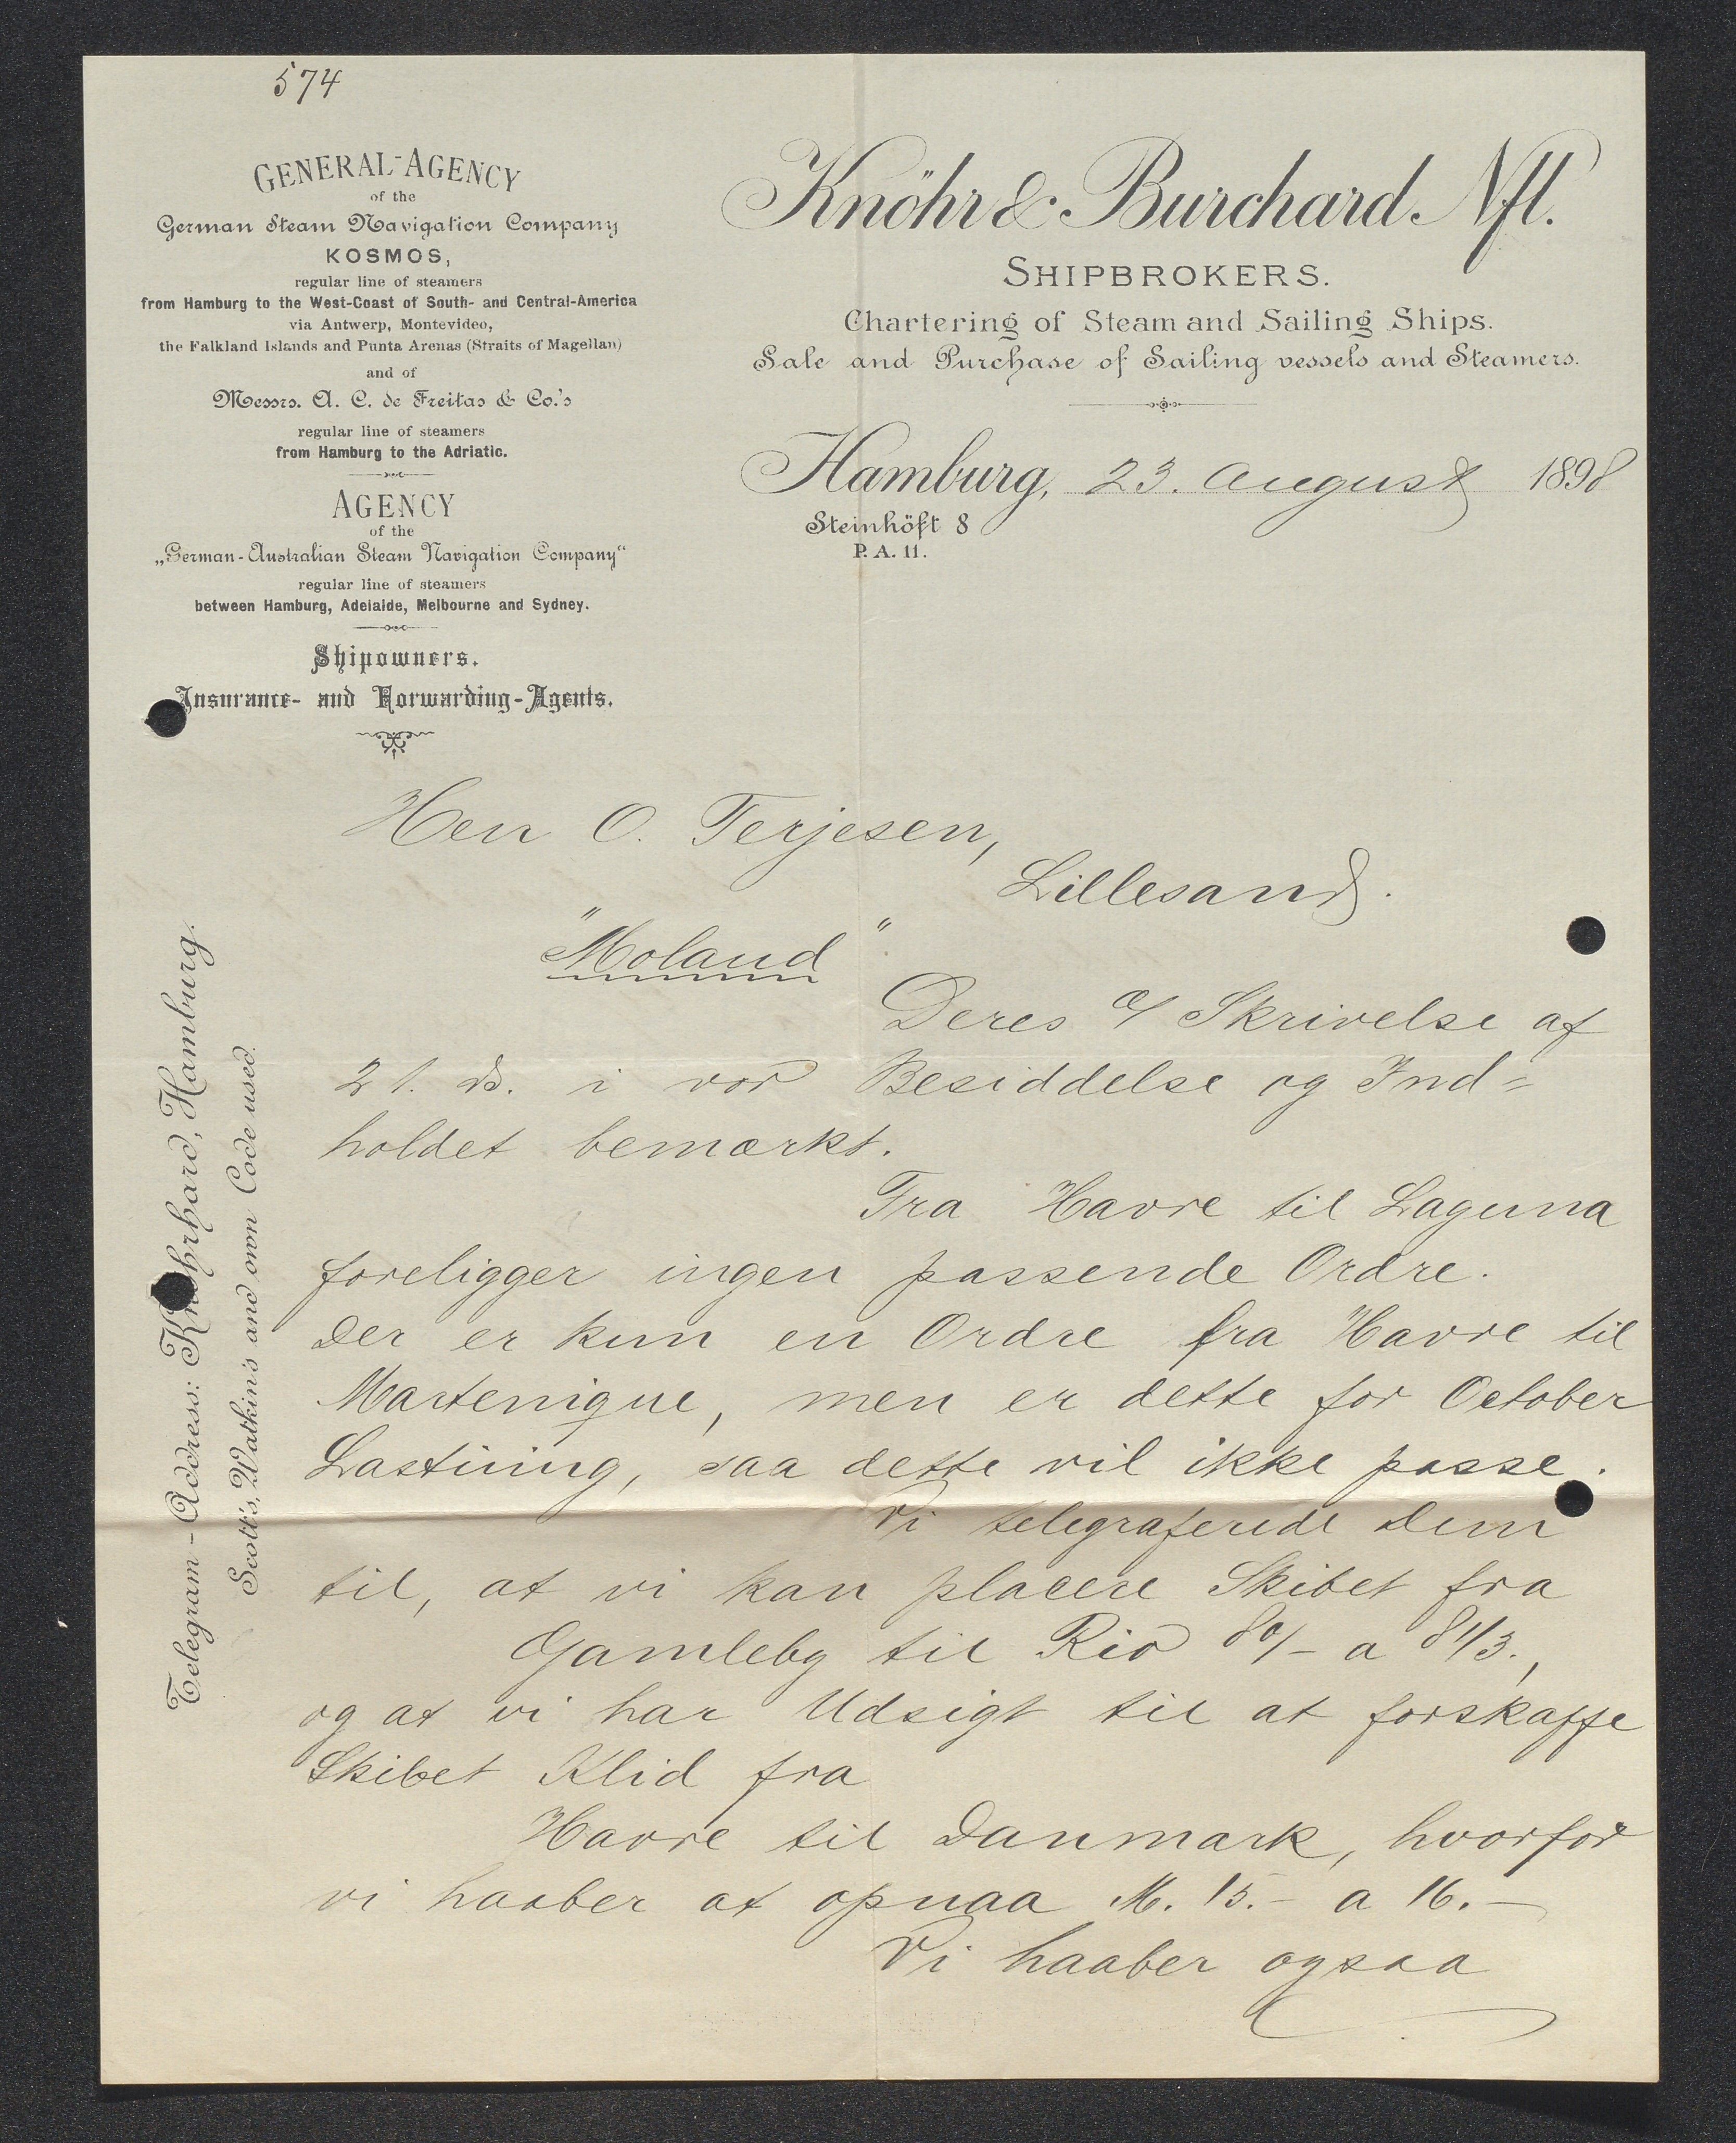 574
GENERAL-AGENCY
of the
German Steam Navigation Company
KOSMOS,
regular line of steamers
from Hamburg to the West-Coast of South- and Central-America
via Antwerp, Montevideo,
the Falkland Islands and Punta Arenas (Straits of Magellan)
and of
Messrs. A. C. de Freitas & Co.'s
regular line of steamers
from Hamburg to the Adriatic.
AGENCY
of the
„German-Australian Steam Navigation Company“
regular line of steamers
between Hamburg, Adelaide, Melbourne and Sydney.
Shipowners.
Insurance- and Forwarding-Agents.
Knöhr & Burchard Nfl.
SHIPBROKERS.
Chartering of Steam and Sailing Ships.
Sale and Purchase of Sailing vessels and Steamers.
Hamburg, 23. August 1898
Steinhöft 8
P. A. 11.
Telegram-Address: Knöhrhard, Hamburg.
Scott's, Watkins and own Code used.
Herr O. Terjesen,
Lillesand.
"Moland".
Deres a/ Skrivelse af
21. ds. i vor Besiddelse og Ind=
holdet bemærkt.
Fra Havre til Laguna
foreligger ingen passende Ordre.
Der er kun en Ordre fra Havre til
Martenique, men er dette for October
Lastning, saa dette vil ikke passe.
Vi telegraferede Dem
til, at vi kan placere Skibet fra
Gamleby til Rio 80/- a 81/3.,
og at vi har Udsigt til at forskaffe
Skibet Klid fra
Havre til Danmark, hvorfor
vi haaber at opnaa M. 15.- a 16.-
Vi haaber ogsaa